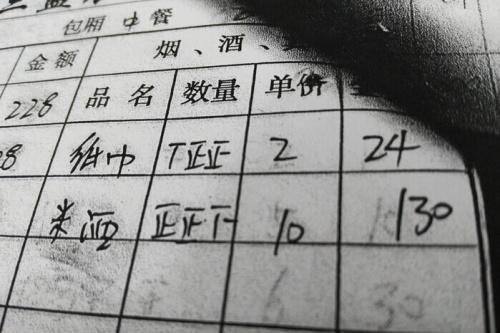 包厢 中餐
金额 烟、酒、
228 品名 数量 单价
8 纸巾 丅正正 2 24
米酒 正正下 10 130